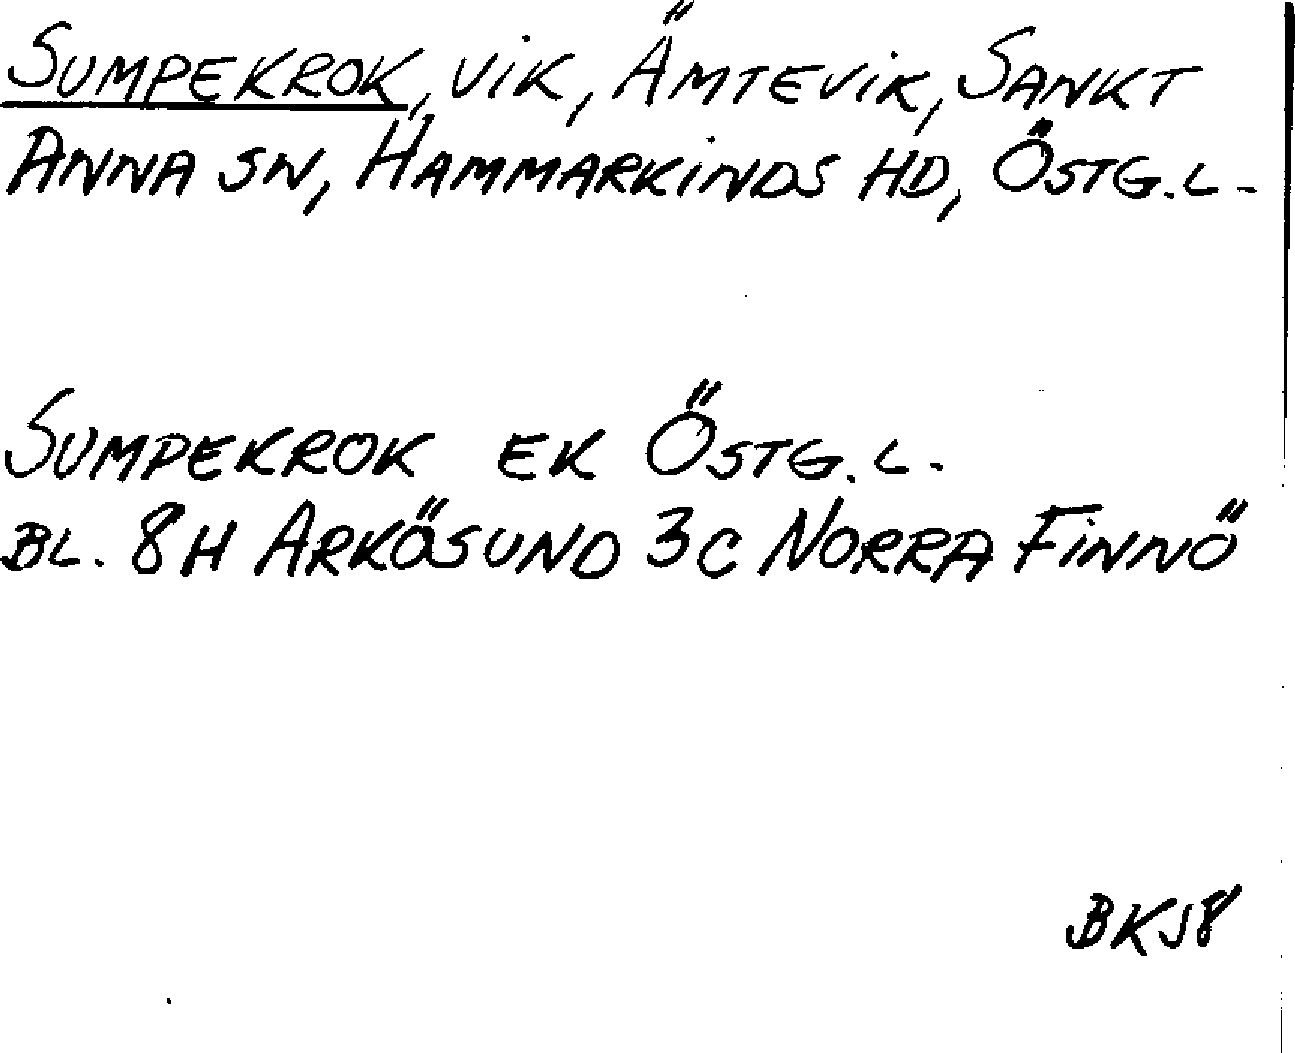 SUMPEKROK, VIK, ÄMTEVIK, SANKT
ANNA SN, HAMMARKINDS HD, ÖSTG.L-
SUMPEKROK EK ÖSTG.L.
BL. 8H ARKÖSUND 3C NORRA FINNÖ
BKJ8